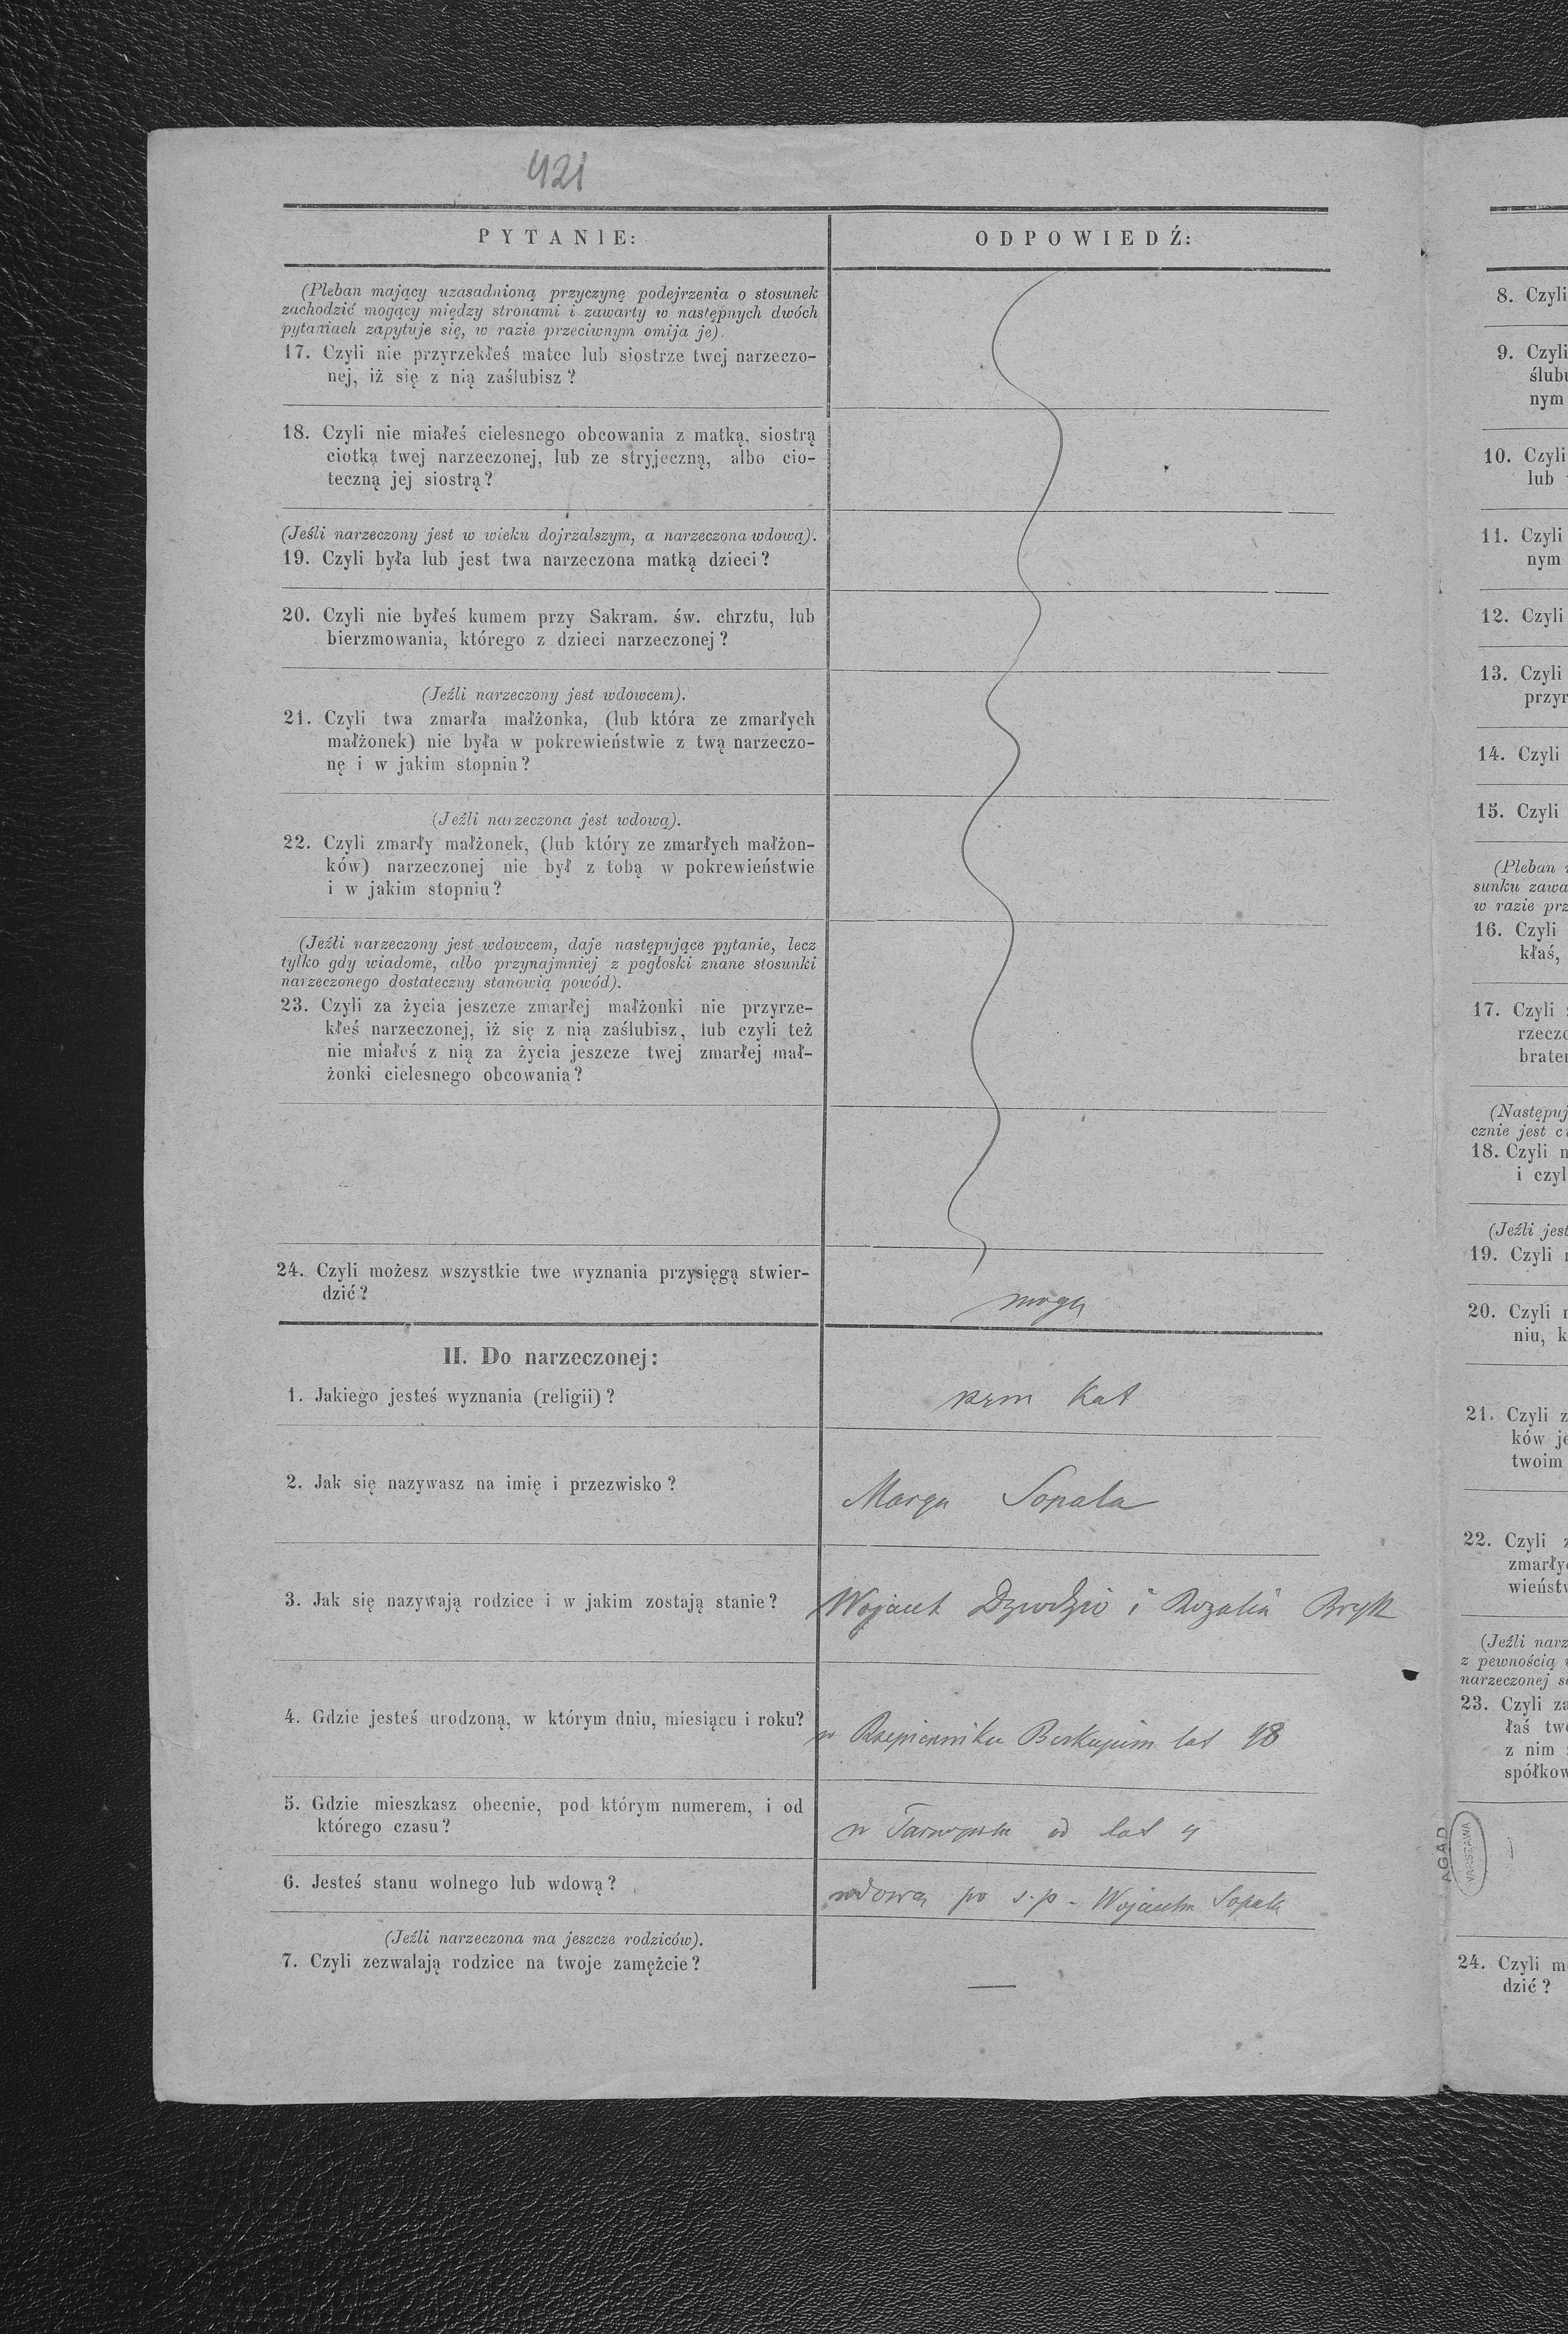 421
PYTANIE:
ODPOWIEDŹ:
(Pleban mający uzasadnioną przyczynę podejrzenia o stosunek
zachodzić mogący między stronami i zawarty w następnych dwóch
pytaniach zapytuje się, w razie przeciwnym omija je).
17. Czyli nie przyrzekłeś matce lub siostrze twej narzeczo-
nej, iż się z nią zaślubisz?
18. Czyli nie miałeś cielesnego obcowania z matką, siostrą
ciotką twej narzeczonej, lub ze stryjeczną, albo cio-
teczną jej siostrą?
(Jeśli narzeczony jest w wieku dojrzalszym, a narzeczona wdową).
19. Czyli była lub jest twa narzeczona matką dzieci?
20. Czyli nie byłeś kumem przy Sakram. św. chrztu, lub
bierzmowania, którego z dzieci narzeczonej?
(Jeźli narzeczony jest wdowcem).
21. Czyli twa zmarła małżonka, (lub która ze zmarłych
małżonek) nie była w pokrewieństwie z twą narzeczo-
nę i w jakim stopniu?
(Jeźli narzeczona jest wdową).
22. Czyli zmarły małżonek, (lub który ze zmarłych małżon-
ków) narzeczonej nie był z tobą w pokrewieństwie
i w jakim stopniu?
(Jeźli narzeczony jest wdowcem, daje następujące pytanie, lecz
tylko gdy wiadome, albo przynajmniej z pogłoski znane stosunki
narzeczonego dostateczny stanowią powód).
23. Czyli za życia jeszcze zmarłej małżonki nie przyrze-
kłeś narzeczonej, iż się z nią zaślubisz, lub czyli też
nie miałeś z nią za życia jeszcze twej zmarłej mał-
żonki cielesnego obcowania?
24. Czyli możesz wszystkie twe wyznania przysięgą stwier-
dzić?
mogę
II. Do narzeczonej:
1. Jakiego jesteś wyznania (religii)?
rzm Kat
2. Jak się nazywasz na imię i przezwisko?
Marya Sopala
3. Jak się nazywają rodzice i w jakim zostają stanie?
Wojciech i Rozalia Bryk
4. Gdzie jesteś urodzoną, w którym dniu, miesiącu i roku?
w Rzepienniku Biskupim lat
5. Gdzie mieszkasz obecnie, pod którym numerem, i od
którego czasu?
w od lat 4
6. Jesteś stanu wolnego lub wdową?
wdową po s.p. Wojciechu Sopala
(Jeźli narzeczona ma jeszcze rodziców).
7. Czyli zezwalają rodzice na twoje zamężcie?
—
8. Czyli
9. Czyli
ślubu
nym
10. Czyli
lub
11. Czyli
nym
12. Czyli
13. Czyli
przyr
14. Czyli
15. Czyli
(Pleban
sunku zawa
w razie prz
16. Czyli
kłaś,
17. Czyli
rzecze
brater
(Następuj
cznie jest c
18. Czyli n
i czyl
(Jeźli jest
19. Czyli
20. Czyli
niu, k
21. Czyli z
ków je
twoim
22. Czyli z
zmarły
wieńst
(Jeźli narz
z pewnością
narzeczonej s
23. Czyli za
łaś tw
z nim
spółkow
AGAD
WARSZAWA
24. Czyli m
dzić?